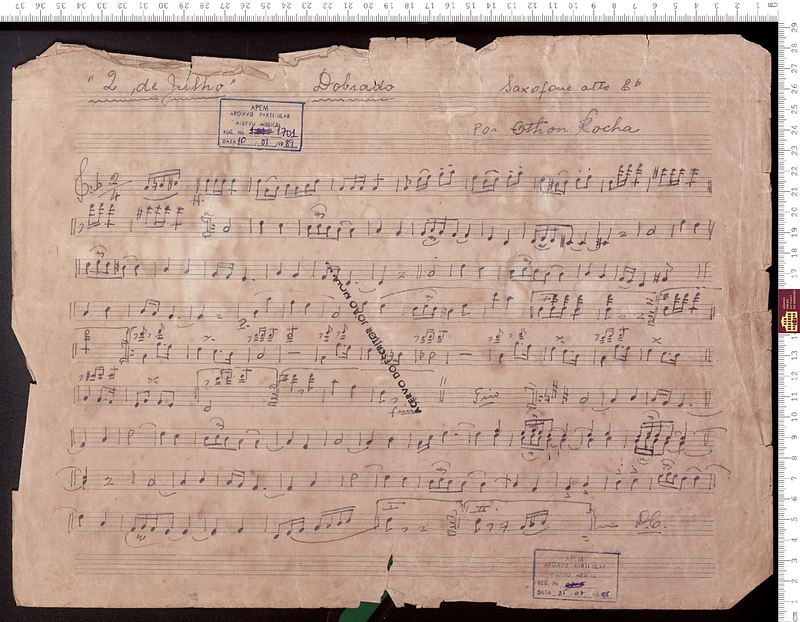 "2 de Julho" Dobrado Saxofone alto Eb
Por Othon Rocha
APEM
ARQUIVO PARTICULAR
ACERVO MUSICAL
REG. No 1701
DATA 10 . 01
ACERVO DO ESCRITOR JOÃO MOHANA
Trio
I II D.C.
APEM
ARQUIVO PARTICULAR
ACERVO MUSICAL
REG. No
DATA 25